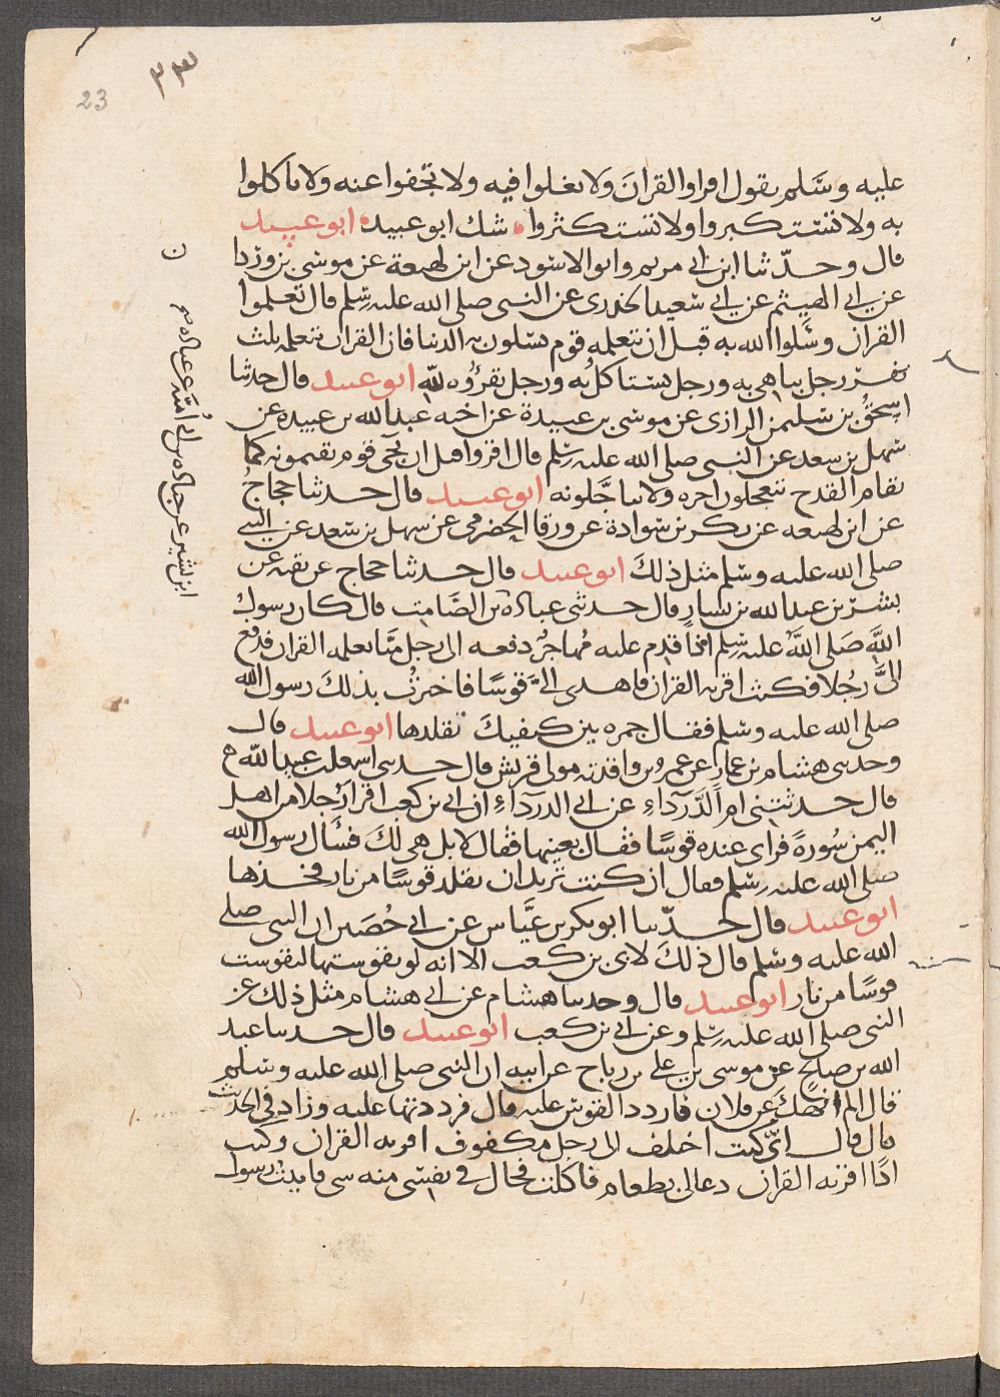 ٢٣
23
عليه وسلم يقول اقراوا القران ولا تغلوا فيه ولا تجفوا عنه ولا تاكلوا
به ولا تستكبروا ولا تستكثروا شك ابو عبيد ابو عبيد
قال وحدثنا ابن ابي مريم وابو الاسود عن ابن لهيعة عن موسى بن وردان
عن ابي الهيثم عن ابي سعيد الخدرى عن النبي صلى الله عليه وسلم قال تعلموا
القران وسلوا الله به قبل ان تتعلمه قوم يسلون به الدنيا فان القران يتعلمه ثلث
نفر رجل يباهى به ورجل يستاكل به ورجل يقرؤه لله ابو عبيد قال حدثنا
اسحق بن سليمن الرازى عن موسى بن عبيدة عن اخيه عبد الله بن عبيده عن
سهل بن سعد عن النبي صلى الله عليه وسلم قال اقروا قبل ان يجى قوم يقيمونه كما
يقام القدح يتعجلون اجره ولا يتاجلونه ابو عبيد قال حدثنا حجاج
عن ابن لهيعه عن بكر بن سوادة عن ورقا الحضرمى عن سهل بن سعد عن النبي
صلى الله عليه وسلم مثل ذلك ابو عبيد قال حدثنا حجاج عن بقيه عن
بشر بن عبد الله بن يسار قال حدثنى عباده بن الصامت قال كان رسول
الله صلى الله عليه وسلم اذا قدم عليه مهاجر دفعه الى رجل منا يعلمه القران فدفع
الى رجلا فكنت اقريه القران فاهدى الى قوسا فاخبرت بذلك رسول الله
صلى الله عليه وسلم فقال جمره بين كتفيك تقلدها ابو عبيد قال
وحدثنى هشام بن عمار عن عمرو بن واقد مولى قريش قال حدثنى اسمعيل بن عبيد الله
قال حدثتنى ام الدرداء عن ابي الدرداء ان ابي بن كعب اقرا رجلا من اهل
اليمن سورة فراى عنده قوسا فقال بعينها فقال لا بل هى لك فسال رسول الله
صلى الله عليه وسلم فقال ان كنت تريد ان تقلد قوسا من نار فخذها
ابو عبيد قال حدثنا ابو بكر بن عياش عن ابي حصين ان النبي صلى
الله عليه وسلم قال ذلك لابى بن كعب الا انه لو تقوستها لتقوست
قوسا من نار ابو عبيد قال وحدثنا هشام عن ابي هشام مثل ذلك عن
النبي صلى الله عليه وسلم وعن ابي بن كعب ابو عبيد قال حدثنا عبد
الله بن صالح عن موسى بن على بن رباح عن ابيه ان النبي صلى الله عليه وسلم
قال الم انهك عن فلان فاردد القوس عليه قال فرددتها عليه وزاد في الحديث
قال قال ابي كنت اختلف الى رجل مكفوف اقريه القران وكنت
اذا اقريه القران دعا لى بطعام فاكلت فحال في نفسى منه شى فاتيت رسول
ابن بشير عن جناده بن ابي امية عن عباده صح
ن